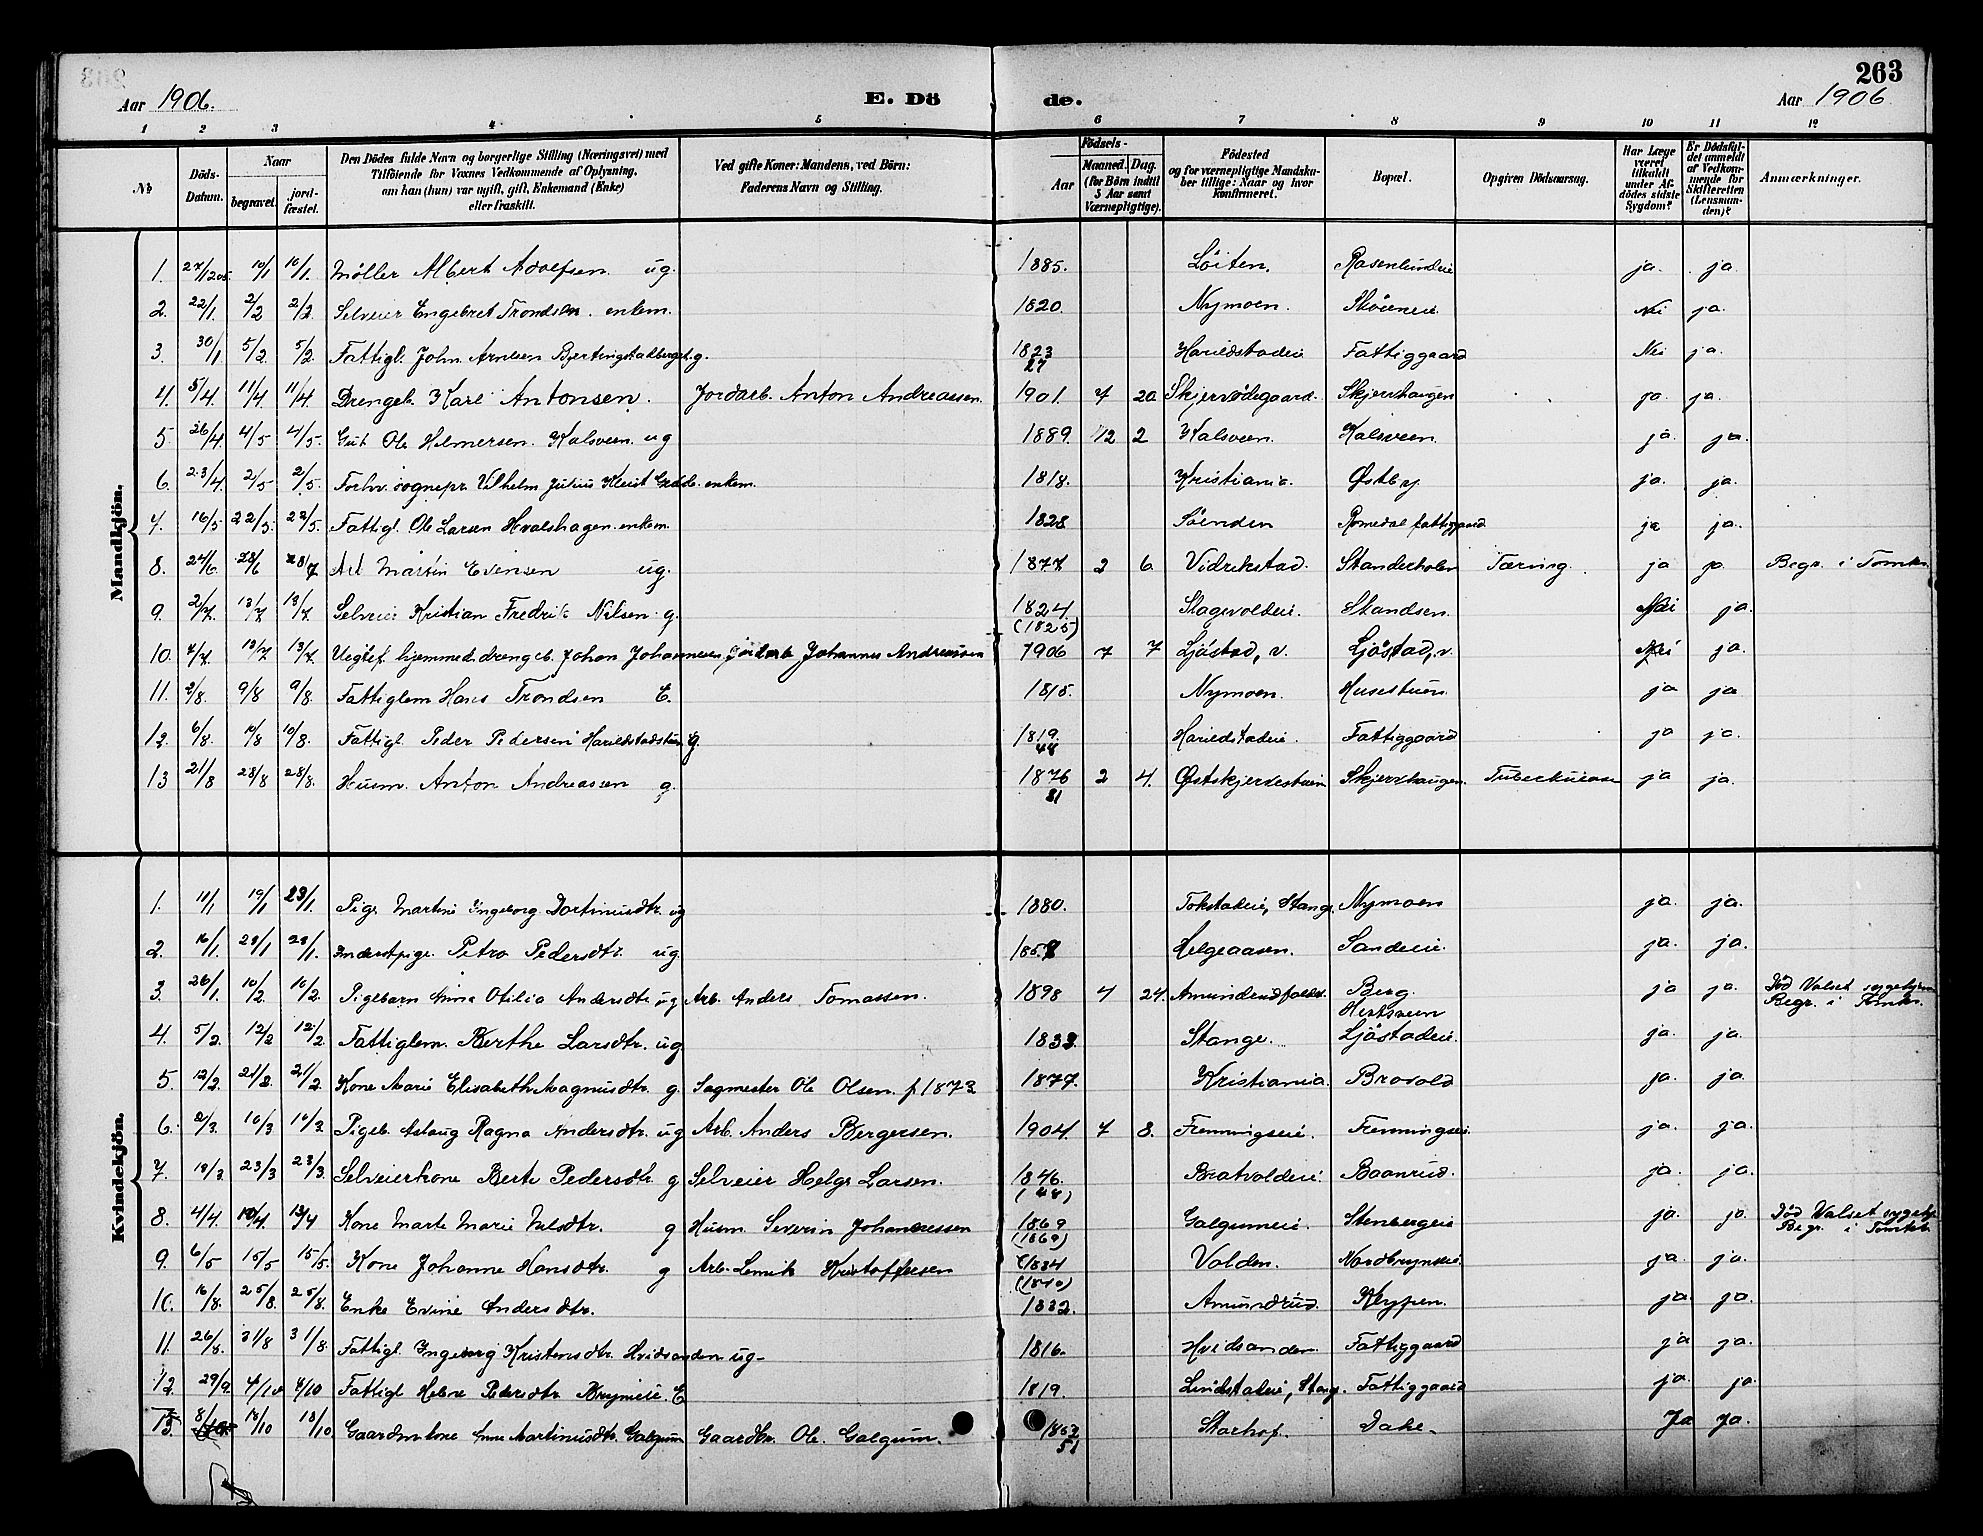 263
Aar 1906.
E. Dö
de.
Aar 1906
1 2 3 4 5 6 7 8 9 10 11 12
№
Döds-Datum.
Naar
begravet.
jord-fæstet.
Den Dödes fulde Navn og borgerlige Stilling (Næringsvei) med Tilföiende for Voxnes Vedkommende af Oplysning, om han (hun) var ugift, gift, Enkemand (Enke) eller fraskilt.
Ved gifte Koner: Mandens, ved Börn: Faderens Navn og Stilling.
Födsels-
Aar
Maaned. Dag.
(for Börn indtil 5 Aar samt Værnepligtige).
Födested og for værnepligtige Mandsku-ber tillige: Naar og hvor konfirmeret.
Bopæl.
Opgiven Dödsaarsag.
Har Læge været tilkaldt under Af-dödes sidste Sygdom?
Er Dödsful-det anmeldt af Vedkom-mende for Skifteretten (Lensman-den)?
Anmærkninger.
Mandkjön.
1. 27/12 05. 10/1 10/1. Möller Albert Adolfsen ug. 1885. Löiten. Rosenlundeie ja. ja.
2. 22/1. 2/2 2/2 Selveier Engebret Trondsen. enkem. 1820. Nymoen. Skönneie Nei ja.
3. 30/1 5/2 5/2 Fattigl. John Arnesen g. 1823 27 Harildstadeie Fattiggaard Nei ja.
4. 5/4. 11/4. 11/4 Drengeb. Karl Antonsen. Jordarb. Anton Andreassen. 1901. 7 20 Skjervödegaard. Skjervhaugen ja. ja.
5. 26/4 4/5 4/5. Gut Ole Helmersen Kalsveen ug 1889. 12 2 Kalsveen. Kalsveen. ja. ja.
6. 23/4 2/5 2/5. Forhv. sognepr. Vilhelm Julius Kleist enkem. 1818. Kristiania. Östby ja. ja.
7. 16/5 22/5. 22/5. Fattigl. Ole Larsen Hvalshagen enkem. 1828 Söenden Romedal fattiggaard ja ja.
8. 24/6. 28/6 28/7 Arb Martin Evensen ug. 1877. 2 6. Vidrikstad. Standerholen Tæring. ja ja. Begr. i Tomter.
9. 2/7. 13/7 13/7 Selveier Kristian Fredrik Nilsen g. 1824 (1825) Slagsvoldeie. Skandsen. Nei ja.
10. 4/7. 13/7 13/7. Uegtef. hjemmed. drengeb. Johan Johannesen, Jordarb Johannes Andreassen 1906 7 7 Ljöstad, v. Ljöstad, v. Nei ja.
11. 2/8. 9/8 9/8. Fattiglem Hans Trondsen E. 1815. Nymoen. Husestuen ja ja
12. 6/8. 10/8 10/8. Fattigl. Peder Pedersen Harildstadstuen g. 1819. 48 Harildstadeie. Fattiggaard ja ja.
13 21/8 28/8 28/8. Husm. Anton Andreassen g. 1876 81 2 4. Östskjervestuen Skjervhaugen. Tuberkulose ja ja.
Kvindekjön.
1. 11/1 19/1 23/1. Pige Martine Ingeborg Dortinusdtr. ug 1880. Tokstadeie, Stange Nymoen ja. ja.
2. 16/1. 28/1 28/1. Inderstpige Petra Pedersdtr. ug. Helgeaasen. Sandeeie ja. ja.
3. 26/1. 10/2 10/2. Pigebarn Anna Otilia Andersdtr ug Arb. Anders Tomassen. 1898 4 24. Berg. Hertsveen ja ja. Död Valset sygehjem Begr. i Tomter.
4. 5/2. 12/2 12/2 Fattiglem. Berthe Larsdtr. ug 1833. Stange. Ljöstadeie. ja. ja.
5. 12/2. 21/2. 21/2 Kone Marie Elisabeth Magnusdtr g. Sagmester Ole Olsen f. 1873 1877. Kristiania. Brovold ja. ja.
6. 2/3. 10/3 10/3. Pigeb. Aslaug Ragna Andersdtr. ug Arb. Anders Bergersen. 1904. 7 8. Fremmingseie. Fremmingseie ja. ja.
7. 18/3. 23/3 23/3 Selveierkone Berte Pedersdtr g Selveier Helge Larsen. 1846. (48) Bratvoldeie Baanrud. ja. ja.
8. 4/4. 10/4. 13/4 Kone Marte Marie Nilsdtr. g Husm. Severin Johannessen 1869 (1869) Galgumeie. Stenbergeie ja. ja. Död Valset sygehj. Begr. i Tomter.
9. 6/5 15/5 15/5. Kone Johanne Hansdtr. g Arb. Lenik Kristoffersen 1834 (1840) Volden. Nordbrynseie. ja. ja.
10. 16/8. 25/8. 25/8. Enke Evine Andersdtr. 1832. Amundrud. Kleppen. ja. ja.
11. 26/8. 31/8 31/8. Fattigl. Ingeborg Kristensdtr. Hvidsanden ug. 1816. Hvidsanden Fattiggaard ja ja.
12. 29/9. 4/10 4/10 Fattigl Helene Pedersdtr Brynieie. E 1819. Lindstadeie, Stange. Fattiggaard ja. ja.
13. 8/10 18/10 18/10. Gaardmkone Anne Martinusdtr. Galgum Gaardbr. Ole Galgum. 1853 51 Starhof. Dake. Ja Ja.